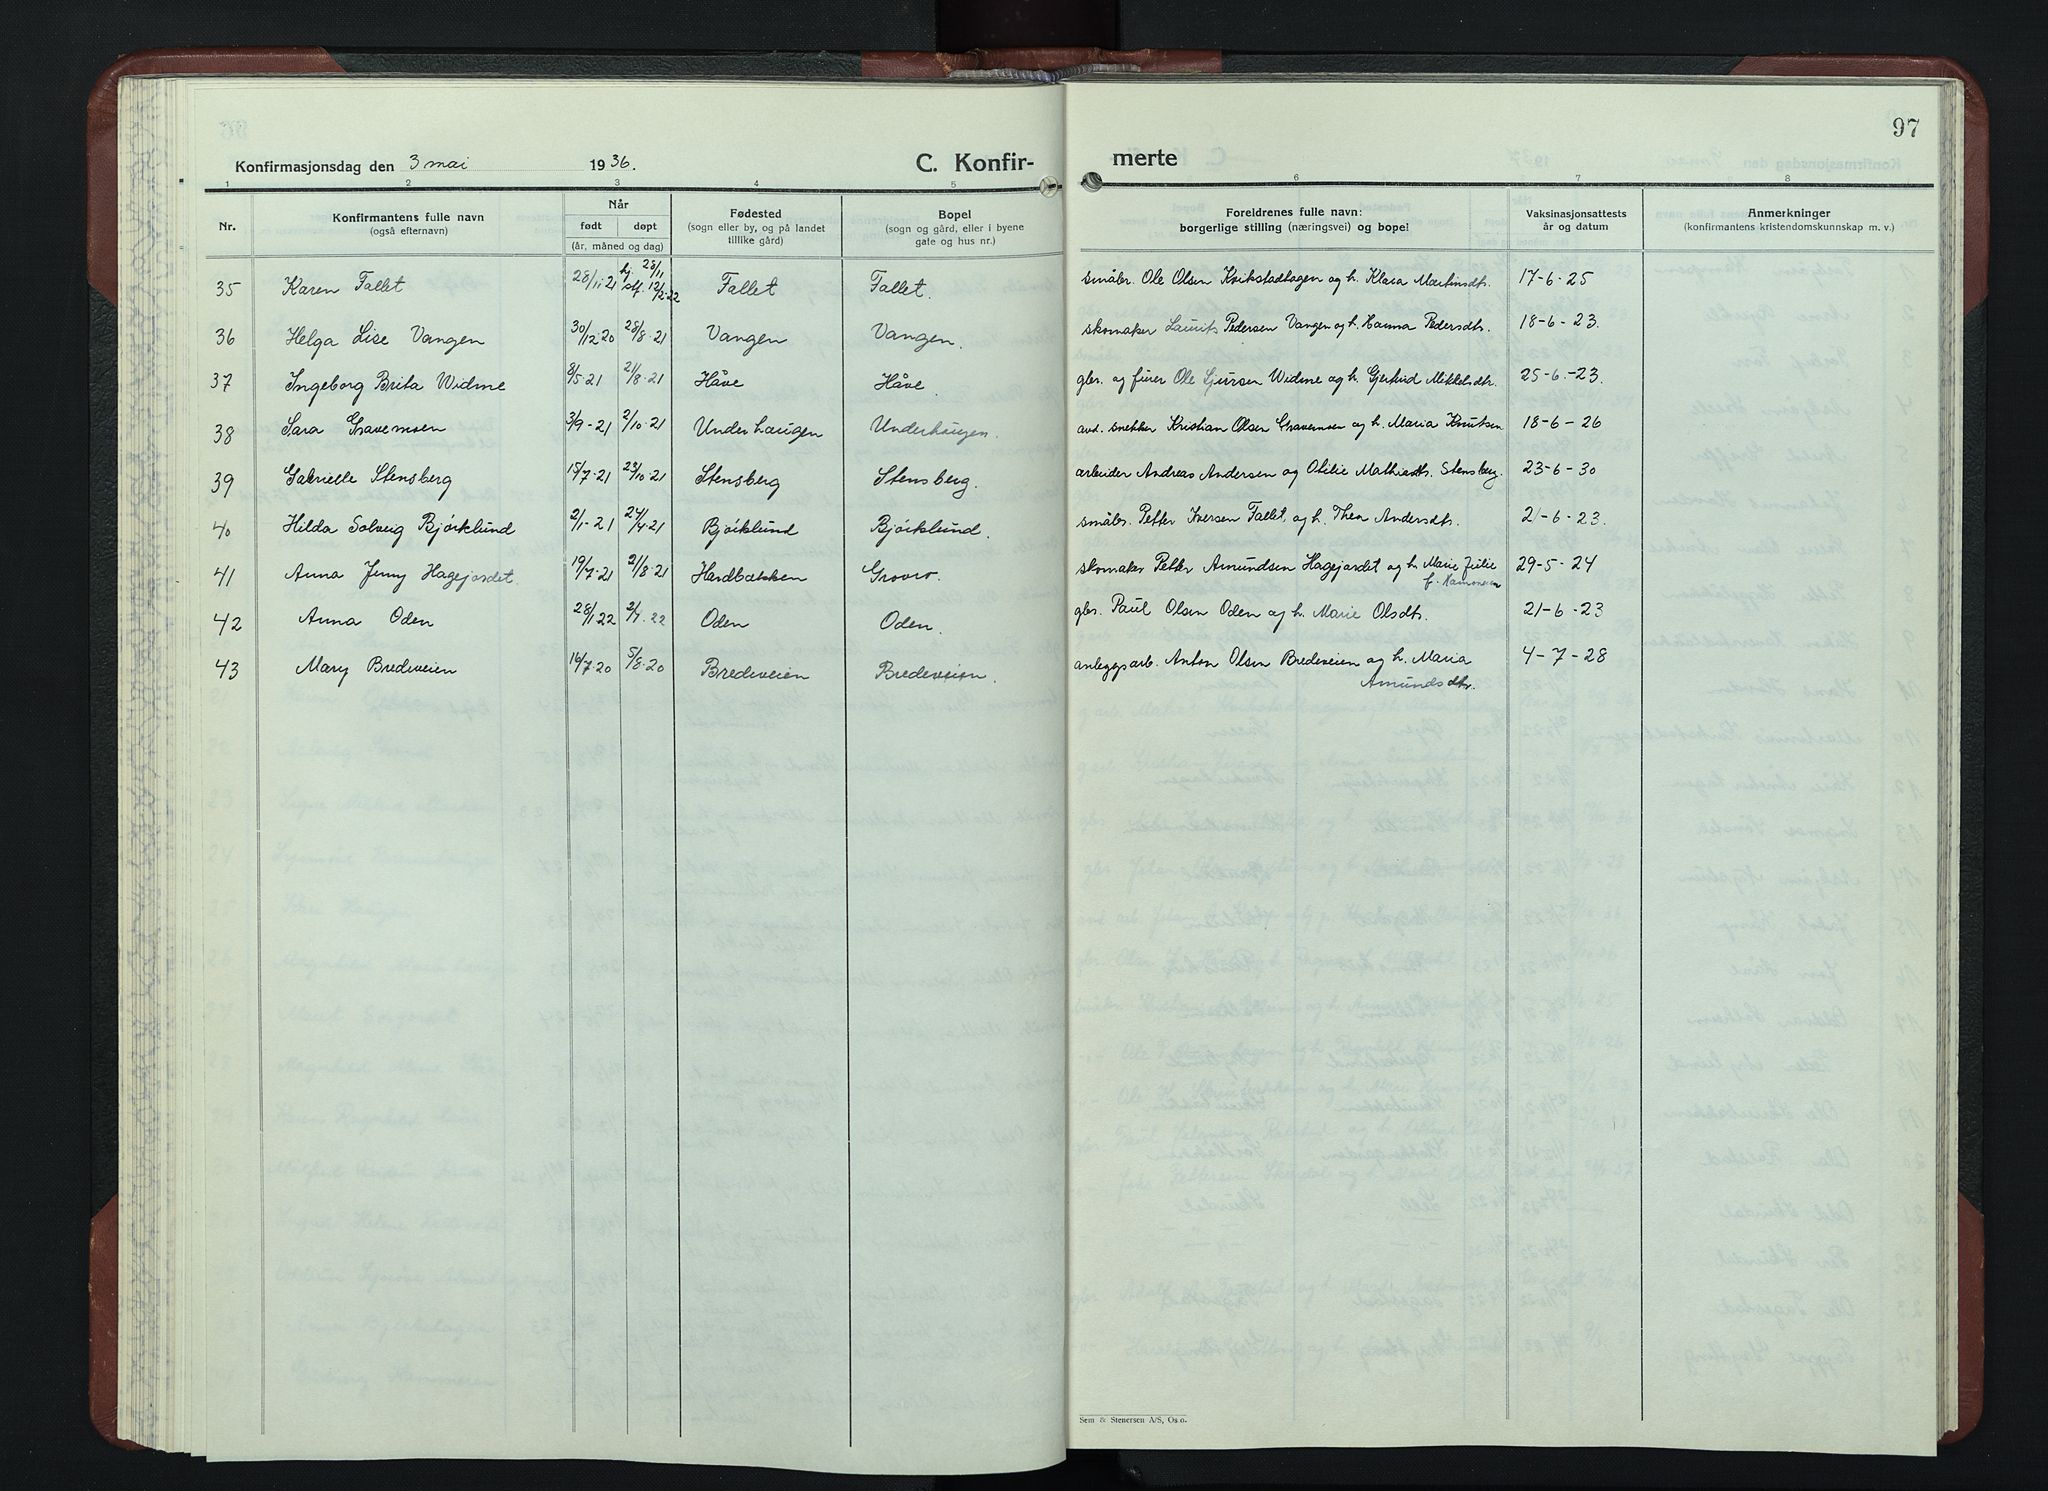 97
Konfirmasjonsdag den 3 mai 1936. C. Konfir- merte
1 2 3 4 5 6 7 8
Nr. Konfirmantens fulle navn (også efternavn) Når født døpt (år, måned og dag) Fødested (sogn eller by, og på landet tillike gård) Bopel (sogn og gård, eller i byene gate og hus nr.) Foreldrenes fulle navn: borgerlige stilling (næringsvei) og bopel Vaksinasjonsattests år og datum Anmerkninger (konfirmantens kristendomskunnskap m. v.)
35 Karen Fallet 28/11.21 hj. 28/11 stf. 12/2.22 Fallet Fallet. småbr. Ole Olsen Kvikstadhagen og h. Klara Martinsdtr. 17-6-25
36 Helga Lise Vangen 30/12.20 28/8.21 Vangen Vangen. skomaker Laurits Pedersen Vangen og h. Hanna Pedersdtr. 18-6-23.
37 Ingeborg Brita Widme 8/5-21 21/8.21 Håve Håve gbr. og furer Ole Sjursen Widme og h. Gjertrud Mikkelsdtr. 25-6.-23.
38 Sara Gravemoen 3/9-21 2/10.21 Underhaugen Underhaugen. avd. snekker Kristian Olsen Gravemoen og h. Maria Knutsen 18-6-26
39 Gabrielle Stensberg 15/7.21 23/10.21 Stensberg Stensberg. arbeider Andreas Andersen og Otilie Mathiasdtr. Stensberg. 23-6-30
40 Hilda Solveig Bjørklund 2/1-21 24/4.21 Bjørklund Bjørklund. småbr. Petter Iversen Fallet og h. Thea Andersdtr. 21-6-23.
41 Anna Jenny Hagejordet. 19/7.21 21/8.21 Hardbakken Grovro. skomaker Petter Amundsen Hagejordet og h. Marie Julie 29-5-24
f. Kamonen
42 Anna Oden 28/1.22 2/7.22 Oden Oden. gbr. Paul Olsen Oden og h. Marie Olsdtr. 21-6-23
43 Mary Bredeveien 16/7.20 5/8.20 Bredeveien Bredeveien. anleggsarb. Anton Olsen Bredeveien og h. Maria 4-7-28
Amundsdtr.
Sem & Stenersen A/S, Oslo.